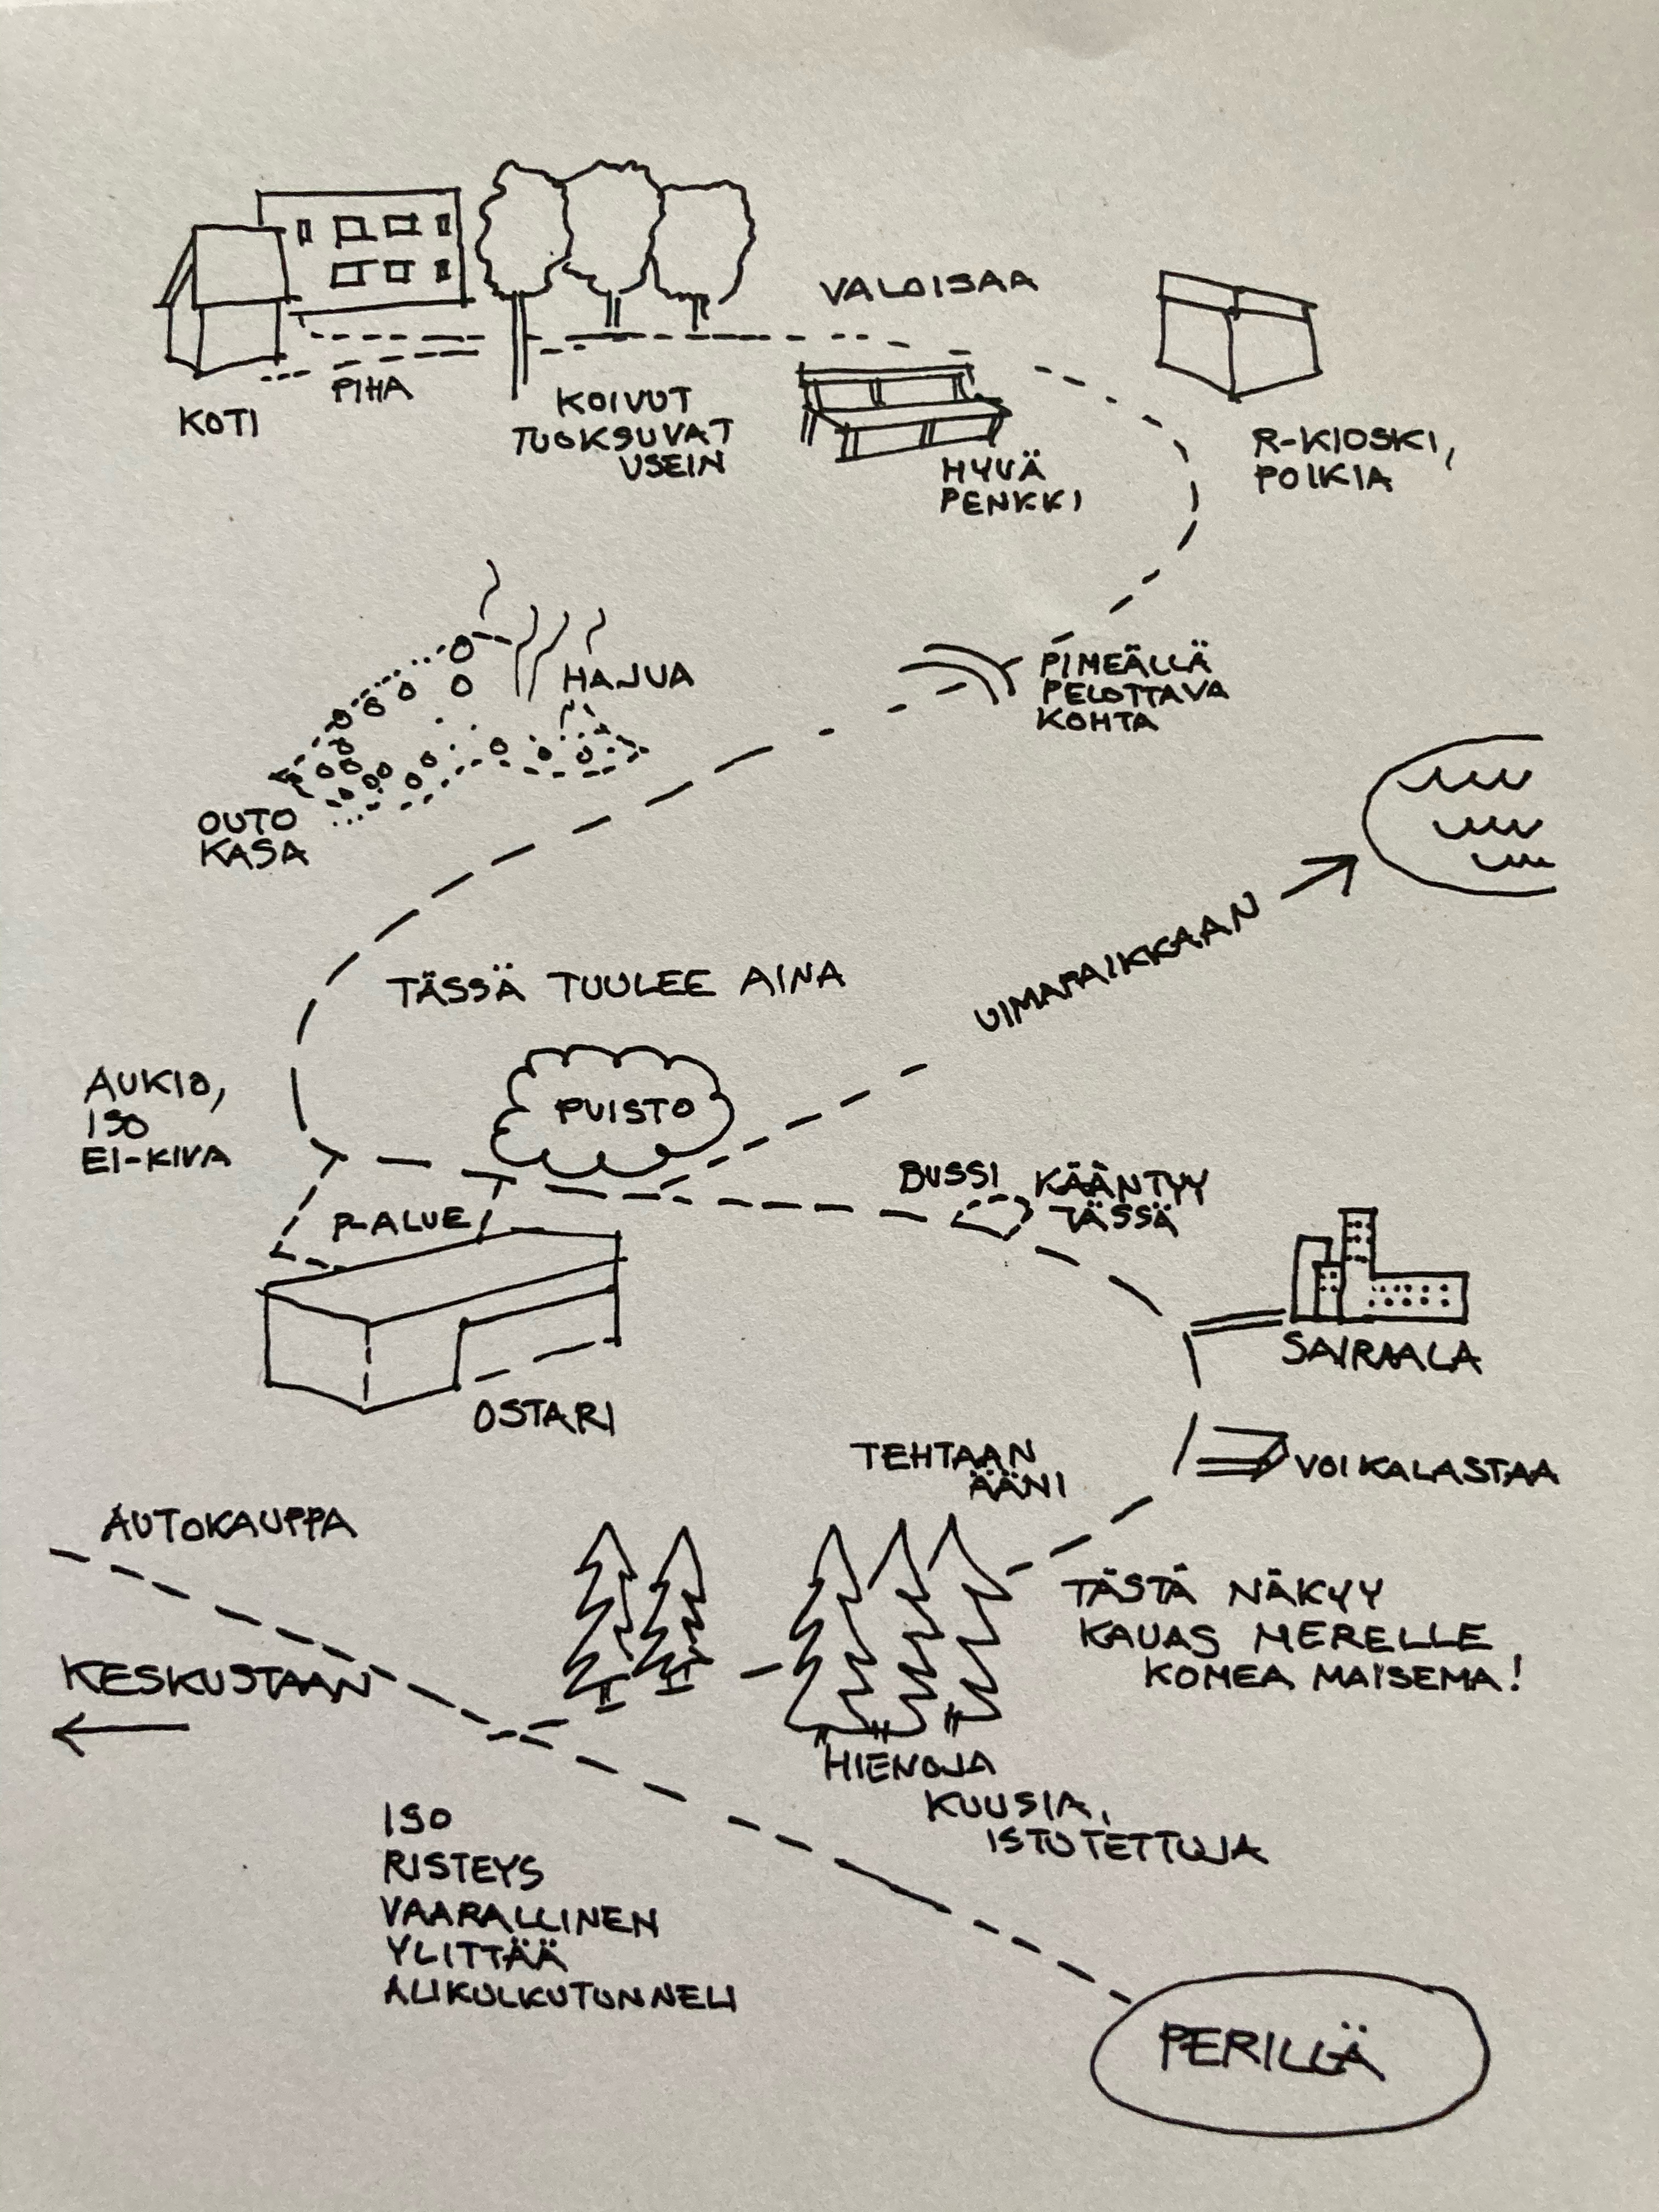 VALOISAA
PIHA
KOTI
KOIVUT
TUOKSUVAT
USEIN
HYVÄ
PENKKI
R-KIOSKI,
POIKIA
HAJUA
PIMEÄLLÄ
PELOTTAVA
KOHTA
OUTO
KASA
UIMAPAIKKAAN
TÄSSÄ TUULEE AINA
AUKIO,
ISO
EI-KIVA
PUISTO
BUSSI KÄÄNTYY
TÄSSÄ
P-ALUE
SAIRAALA
OSTARI
TEHTAAN
ÄÄNI
VOI KALASTAA
AUTOKAUPPA
TÄSTÄ NÄKYY
KAUAS MERELLE
KOMEA MAISEMA!
KESKUSTAAN
HIENOJA
KUUSIA,
ISTUTETTUJA
ISO
RISTEYS
VAARALLINEN
YLITTÄÄ
ALIKULKUTUNNELI
PERILLÄ